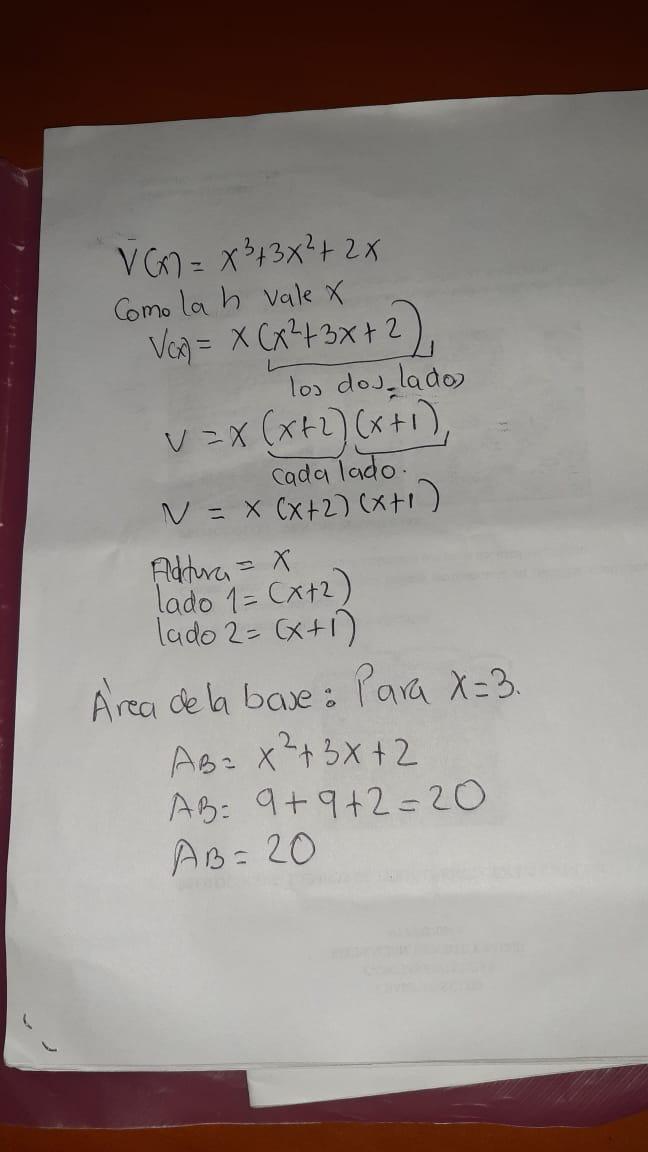 V(x) = x³+3x²+2x
Como la h vale x
V(x) = x(x²+3x+2),
los dos lados
V = x (x+2)(x+1),
cada lado.
V = x (x+2)(x+1)
Altura = x
lado 1= (x+2)
lado 2= (x+1)
Área de la base: Para x=3.
AB= x²+3x+2
AB= 9+9+2=20
AB= 20